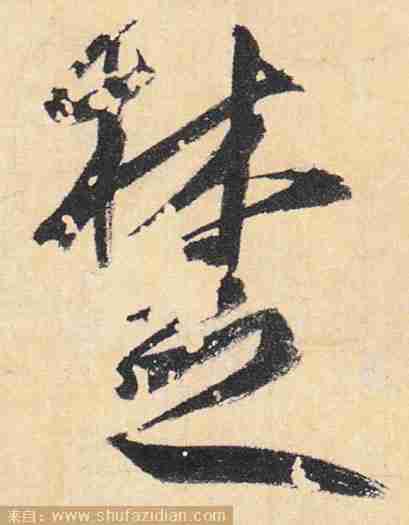 楚
来自：www.shufazidian.com